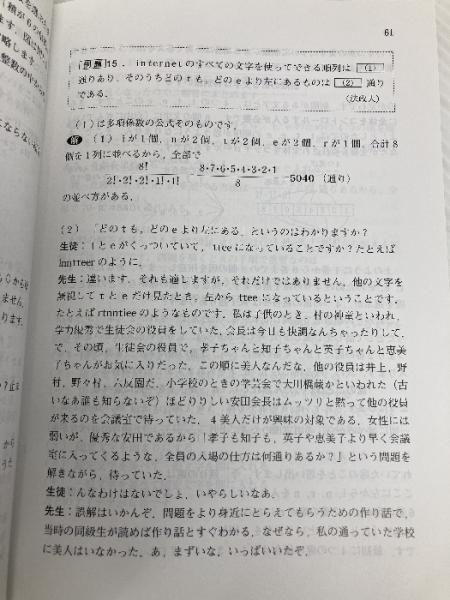 61
例題15. internetのすべての文字を使ってできる順列は (1)
通りあり,そのうちどのtも,どのeより左にあるものは (2) 通り
である. (法政大)
(1)は多項係数の公式そのものです.
(1) iが1個,nが2個,tが2個,eが2個,rが1個,合計8
個を1列に並べるから,全部で
8!/2!・2!・2!・1!・1! = 8・7・6・5・4・3・2・1/8 = 5040(通り)
の並べ方がある.
(2) 「どのtも,どのeより左にある」というのはわかりますか?
生徒:tとeがくっついていて,tteeになっていることですか?たとえば
inntteerのように.
先生:違います.それも適しますが,それだけではありません.他の文字を
無視してtとeだけ見たとき,左からtteeになっているということです.
たとえばrtnnttieeのようなものです.私は子供のとき,村の神童といわれ,
学力優秀で生徒会の役員をしていた.会長は今日も快調なんちゃったりして.
で,その頃,生徒会の役員で,孝子ちゃんと知子ちゃんと英子ちゃんと恵美
子ちゃんがお気に入りだった.この順に美人なんだな.他の役員は井上,野
村,野々村,六反園だ.小学校のときの学芸会で大川橋蔵かといわれた(古
いなあ誰も知らないぞ)ほどりりしい安田会長はムッツリと黙って他の役員
が来るのを会議室で待っていた.4美人だけが興味の対象である.女性には
弱いが,優秀な安田であるから「孝子も知子も,英子や恵美子より早く会議
室に入ってくるような,全員の入場の仕方は何通りあるか?」という問題を
解きながら,待っていた.
生徒:んなわけはないでしょ.いやらしいなあ.
先生:誤解はいかんぞ.問題をより身近にとらえてもらうための作り話で,
当時の同級生が読めば作り話とすぐわかる.なぜなら,私の通っていた学校
に美人はいなかった.あ,まずいな,いっぱいいたぞ.